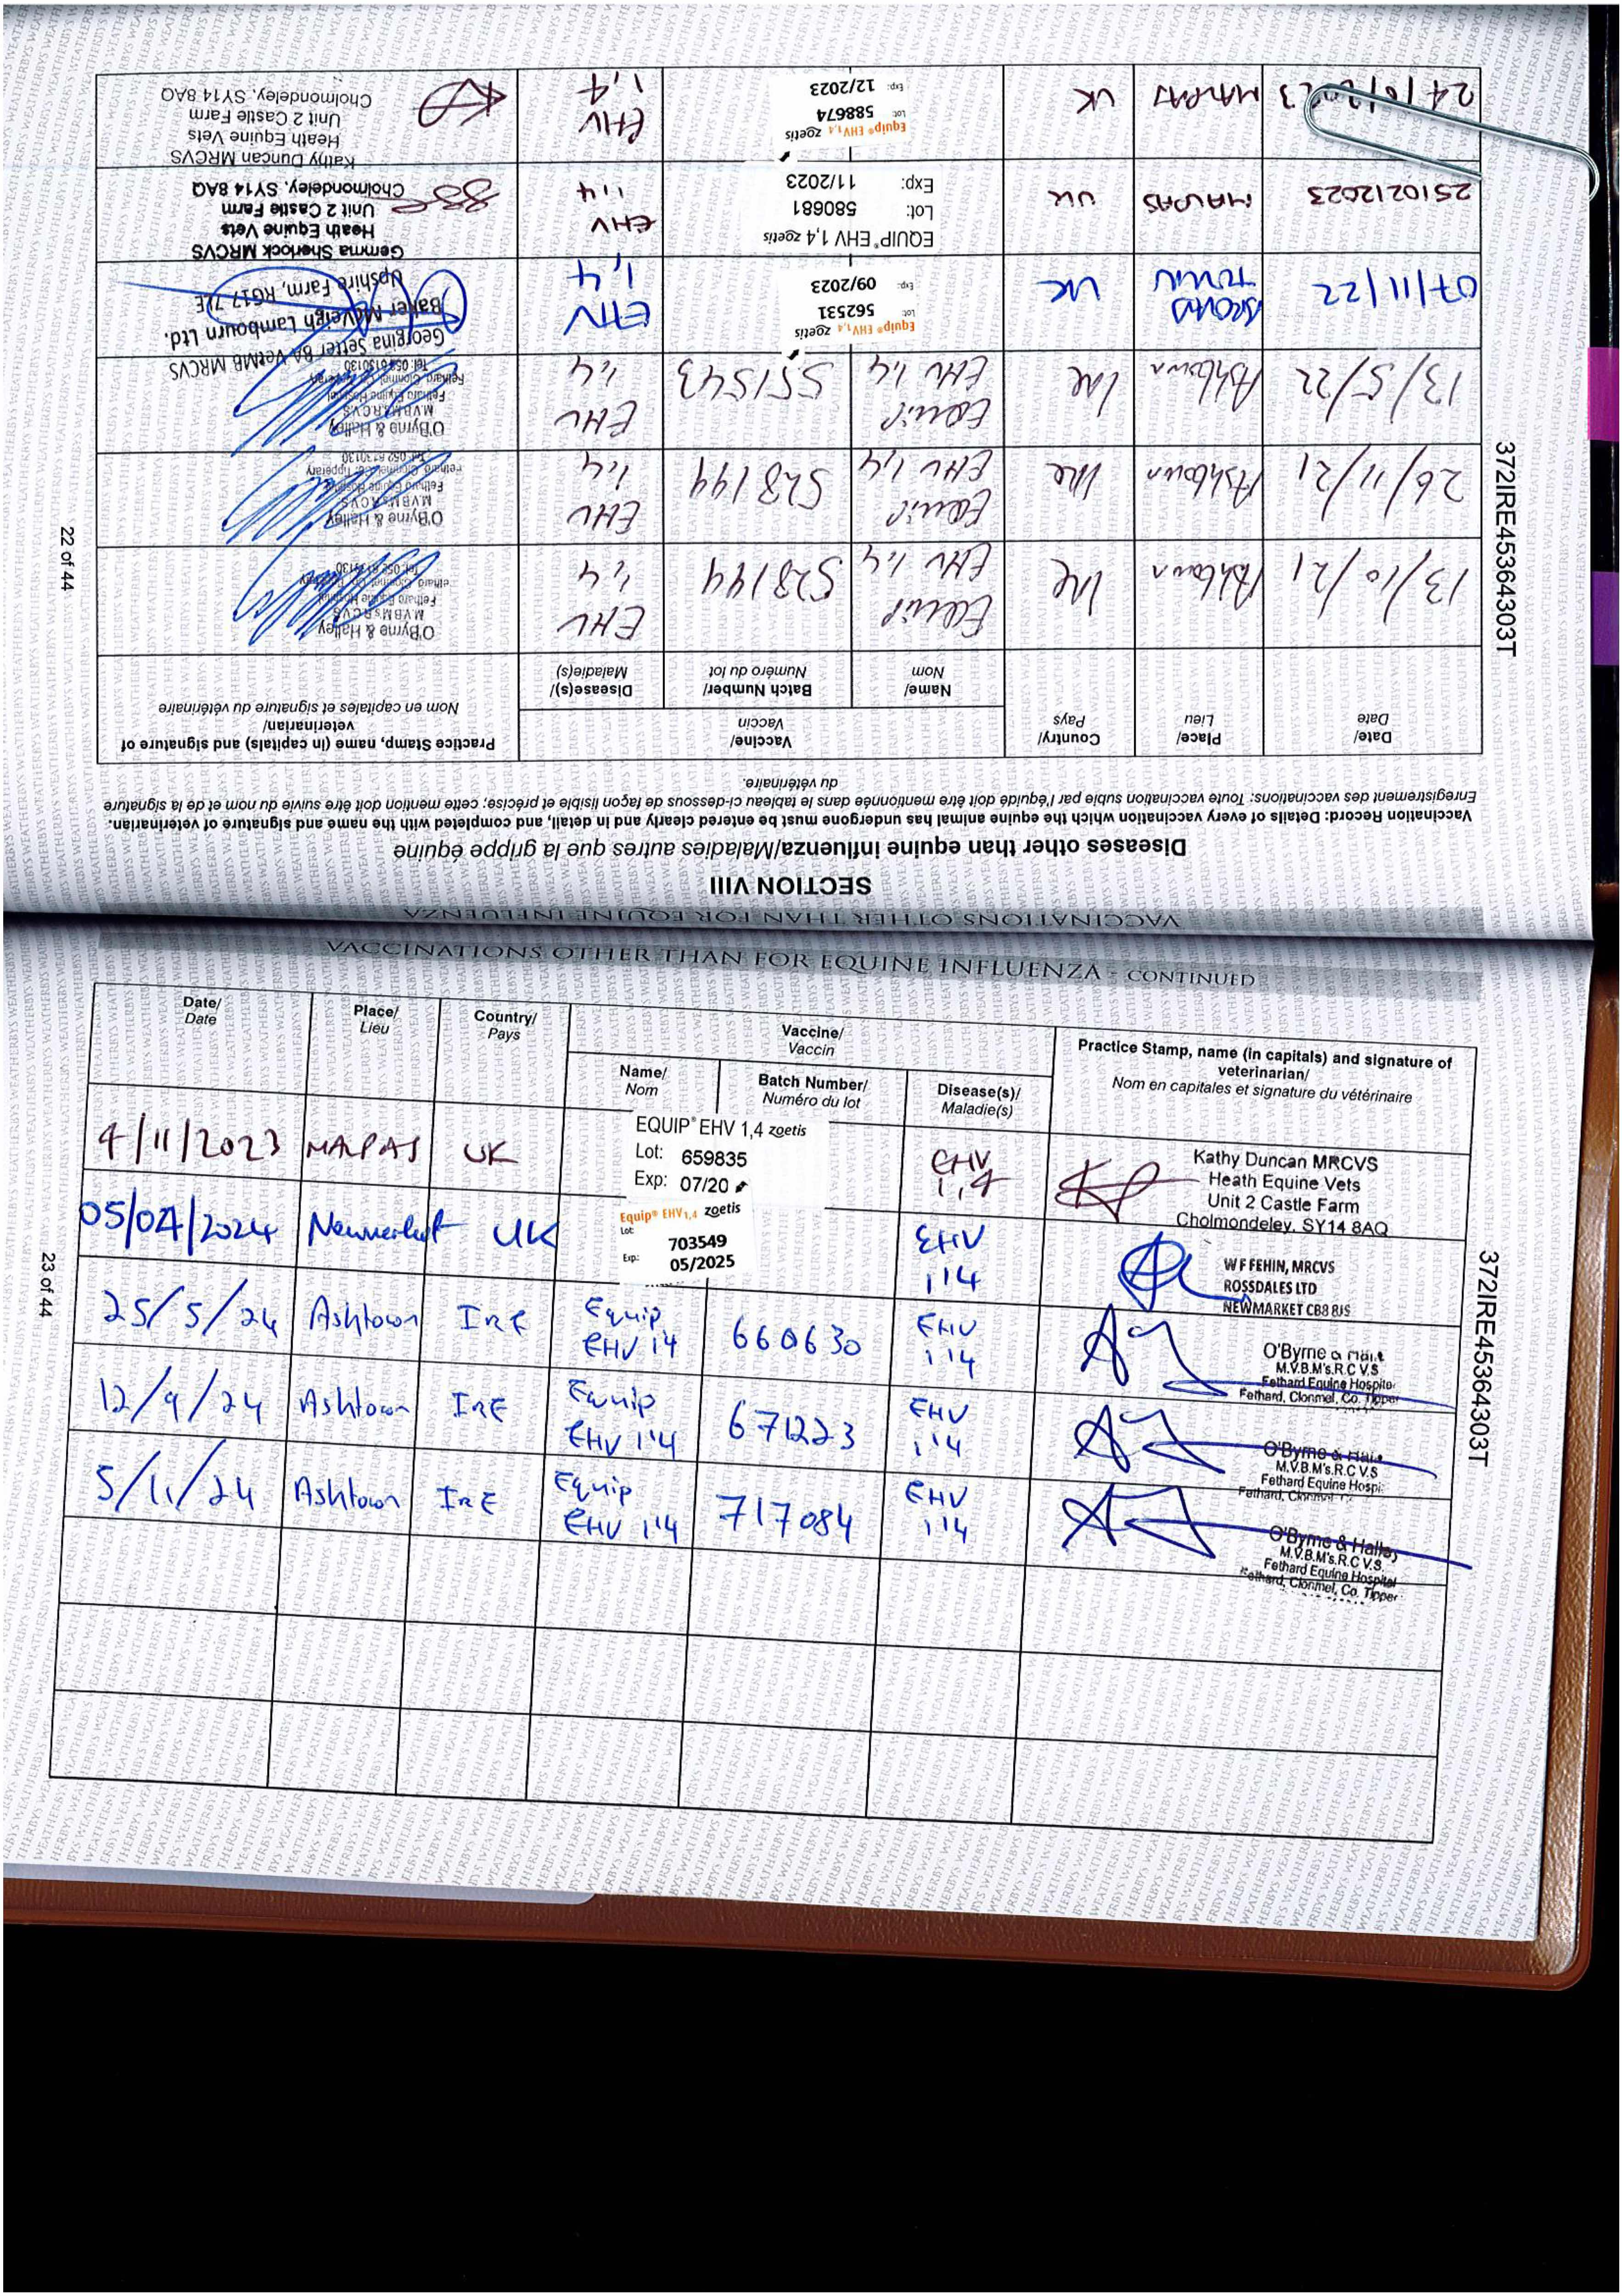 SECTION VIII
Diseases other than equine influenza/Maladies autres que la grippe équine
Vaccination Record: Details of every vaccination which the equine animal has undergone must be entered clearly and in detail, and completed with the name and signature of veterinarian.
Enregistrement des vaccinations: Toute vaccination subie par l'équidé doit être mentionnée dans le tableau ci-dessous de façon lisible et précise; cette mention doit être suivie du nom et de la signature
du vétérinaire.
Date/
Date
Place/
Lieu
Country/
Pays
Vaccine/
Vaccin
Name/
Nom
Batch Number/
Numéro du lot
Disease(s)/
Maladie(s)
Practice Stamp, name (in capitals) and signature of
veterinarian/
Nom en capitales et signature du vétérinaire
13/10/21 Ashtown Ire Equip EHV 1,4 528144 EHV 1,4
O'Byrne & Halley
M.V.B.M's.R.C.V.S
Fethard Equine Hospital
26/11/21 Ashtown Ire Equip EHV 1,4 528144 EHV 1,4
O'Byrne & Halley
M.V.B.M's.R.C.V.S
Fethard Equine Hospital
13/5/22 Ashtown Ire Equip EHV 1,4 551543 EHV 1,4
O'Byrne & Halley
M.V.B.M's.R.C.V.S
Fethard Equine Hospital
07/11/22 UK
Equip® EHV1,4 zoetis
Lot: 562531
Exp: 09/2023
EHV 1,4
Georgina Setter BA VetMB MRCVS
Baker McVeigh Lambourn Ltd.
Upshire Farm, RG17 7LE
25/02/2023 MALPAS UK
EQUIP® EHV 1,4 zoetis
Lot: 580681
Exp: 11/2023
EHV 1,4
Gemma Sherlock MRCVS
Heath Equine Vets
Unit 2 Castle Farm
Cholmondeley, SY14 8AQ
MALPAS UK
Equip® EHV1,4 zoetis
Lot: 588674
Exp: 12/2023
EHV 1,4
Kathy Duncan MRCVS
Heath Equine Vets
Unit 2 Castle Farm
Cholmondeley, SY14 8AQ
372IRE45364303T
22 of 44
VACCINATIONS OTHER THAN FOR EQUINE INFLUENZA
VACCINATIONS OTHER THAN FOR EQUINE INFLUENZA - CONTINUED
Date/
Date
Place/
Lieu
Country/
Pays
Vaccine/
Vaccin
Name/
Nom
Batch Number/
Numéro du lot
Disease(s)/
Maladie(s)
Practice Stamp, name (in capitals) and signature of
veterinarian/
Nom en capitales et signature du vétérinaire
4/11/2023 MALPAS UK
EQUIP® EHV 1,4 zoetis
Lot: 659835
Exp: 07/20
EHV 1,4
Kathy Duncan MRCVS
Heath Equine Vets
Unit 2 Castle Farm
Cholmondeley, SY14 8AQ
05/04/2024 Newmarket UK
Equip® EHV1,4 zoetis
Lot: 703549
Exp: 05/2025
EHV 1'4
W F FEHIN, MRCVS
ROSSDALES LTD
NEWMARKET CB8 8JS
25/5/24 Ashtown IRE Equip EHV 1'4 660630 EHV 1'4
O'Byrne &
M.V.B.M's.R.C.V.S
Fethard Equine Hospital
Fethard, Clonmel, Co. Tipper
12/9/24 Ashtown IRE Equip EHV 1'4 671223 EHV 1'4
O'Byrne &
M.V.B.M's.R.C.V.S
Fethard Equine Hospi
Fethard,
5/11/24 Ashtown IRE Equip EHV 1'4 717084 EHV 1'4
O'Byrne & Halley
M.V.B.M's.R.C.V.S.
Fethard Equine Hospital
Fethard, Clonmel, Co. Tipper
372IRE45364303T
23 of 44